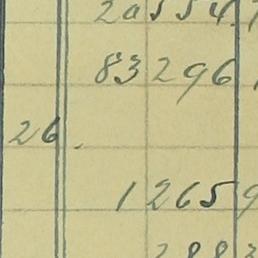 20554.
83296
26.
12659
2883